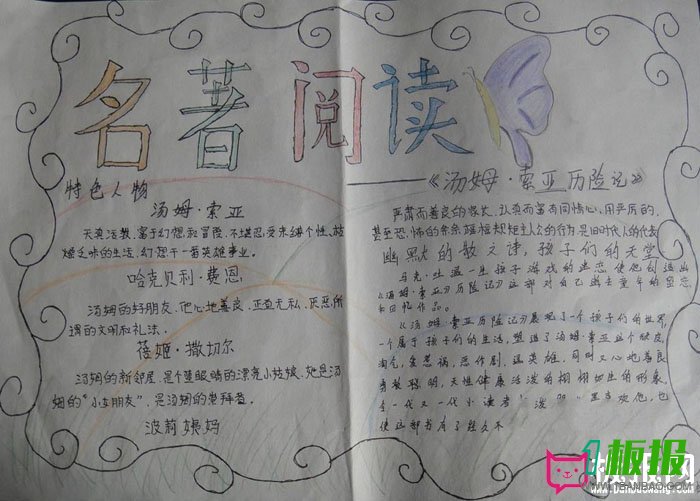 名著阅读
——《汤姆·索亚历险记》
特色人物
汤姆·索亚
天真活泼，富于幻想和冒险，不堪忍受束缚个性，枯
燥乏味的生活，幻想干一番英雄事业。
哈克贝利·费恩
汤姆的好朋友，他心地善良，正直无私，厌恶所
谓的文明和礼法。
蓓姬·撒切尔
汤姆的新邻居，是个蓝眼睛的漂亮小姑娘，她是汤
姆的“小女朋友”，是汤姆的崇拜者。
波莉姨妈
严肃而善良的家长，认真而富有同情心，用严厉的，
甚至恐怖的
规矩主人公的行为，是旧时代人的代表
幽默的散文诗，孩子们的天堂
马克·吐温一生孩子游戏的迷恋使他创造出
《汤姆·索亚历险记》这部对自己逝去童年的留恋
和回忆作品。
《汤姆·索亚历险记》展现了一个孩子们的世界，
一个属于孩子们的生活，塑造了汤姆·索亚这个缺点，
淘气，爱惹祸，恶作剧，逞英雄，同时又心地善良
勇敢聪明，天性健康活泼的栩栩如生的形象，
令一代又一代小读者
喜欢他，也
使这部书有了经久不
板报
WWW.1BANBAO.COM